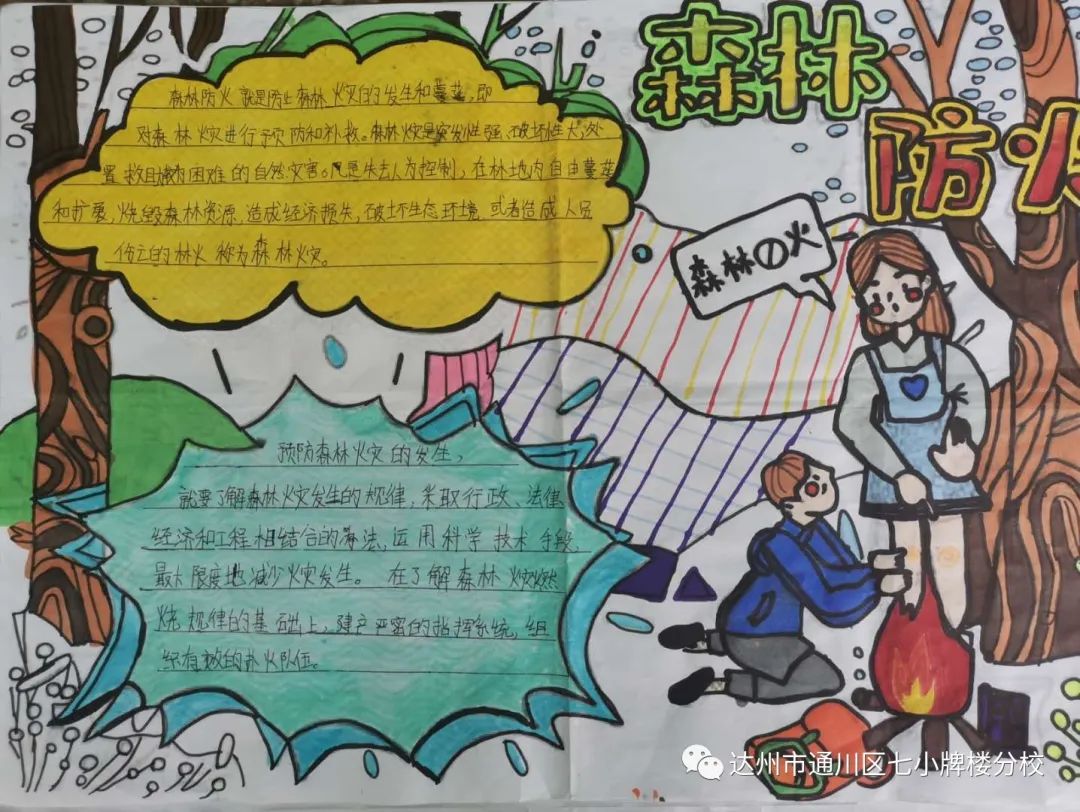 森林
防火
森林防火就是防止森林火灾的发生和蔓延,即
对森林火灾进行预防和补救。森林火灾是突发性强、破坏性大、处
置救助较为困难的自然灾害。凡是失去人为控制,在林地内自由蔓延
和扩展,烧毁森林资源,造成经济损失,破坏生态环境,或者造成人员
伤亡的林火称为森林火灾。
森林の火
预防森林火灾的发生,
就要了解森林火灾发生的规律,采取行政、法律、
经济和工程相结合的办法,运用科学技术手段,
最大限度地减少火灾发生。在了解森林火灾燃
烧规律的基础上,建立严密的指挥系统,组
织有效的扑火队伍。
达州市通川区七小牌楼分校